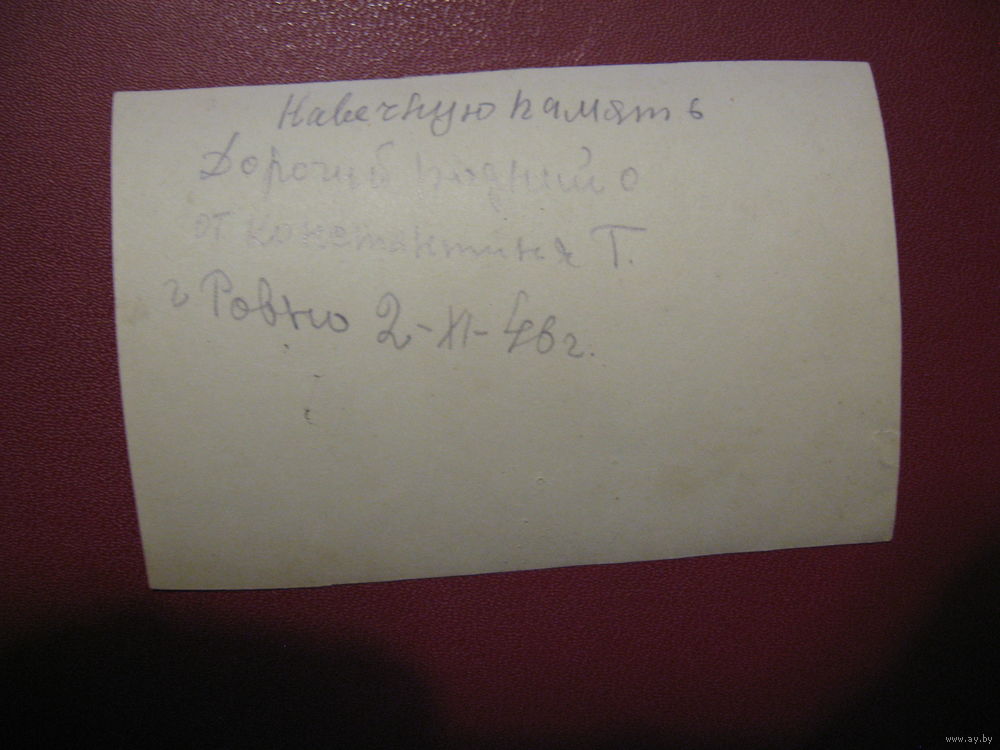 Навечную память
Дорогий
от константина Т.
г Ровно 2-XI-46г.
www.ay.by